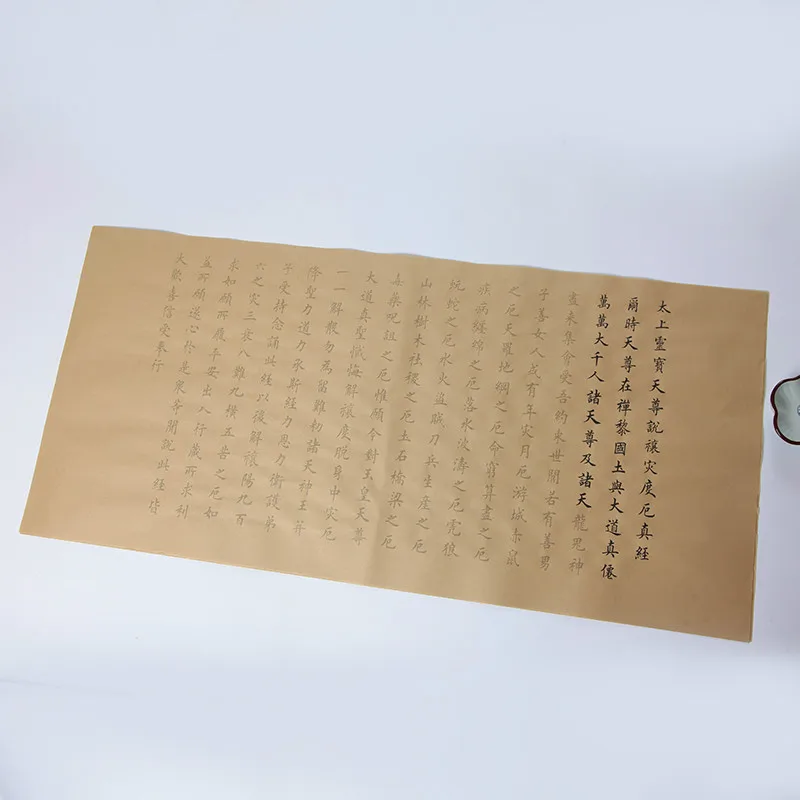 太上靈寶天尊說禳灾度厄真經
爾時天尊在禪黎國土與大道真僊
萬萬大千人諸天尊及諸天龍鬼神
盡來集會受吾約束世間若有善男
子善女人或有年灾月厄游城赤鼠
之厄天羅地網之厄命窮算盡之厄
疾病纏綿之厄落水波濤之厄虎狼
蚖蛇之厄水火盜賊刀兵生產之厄
山林樹木社稷之厄土石橋梁之厄
毒藥咒詛之厄惟願今對玉皇天尊
大道真聖懺悔解禳度脫身中灾厄
一一解散勿為留難初諸天神王并
侍聖力道力承斯經力恩力衛護弟
子受持念誦此經以後解禳陽九百
六之灾三衰八難九橫五苦之厄如
求如願所履平安出入行藏所求利
益所願道心於是衆等聞說此經皆
大歡喜信受奉行